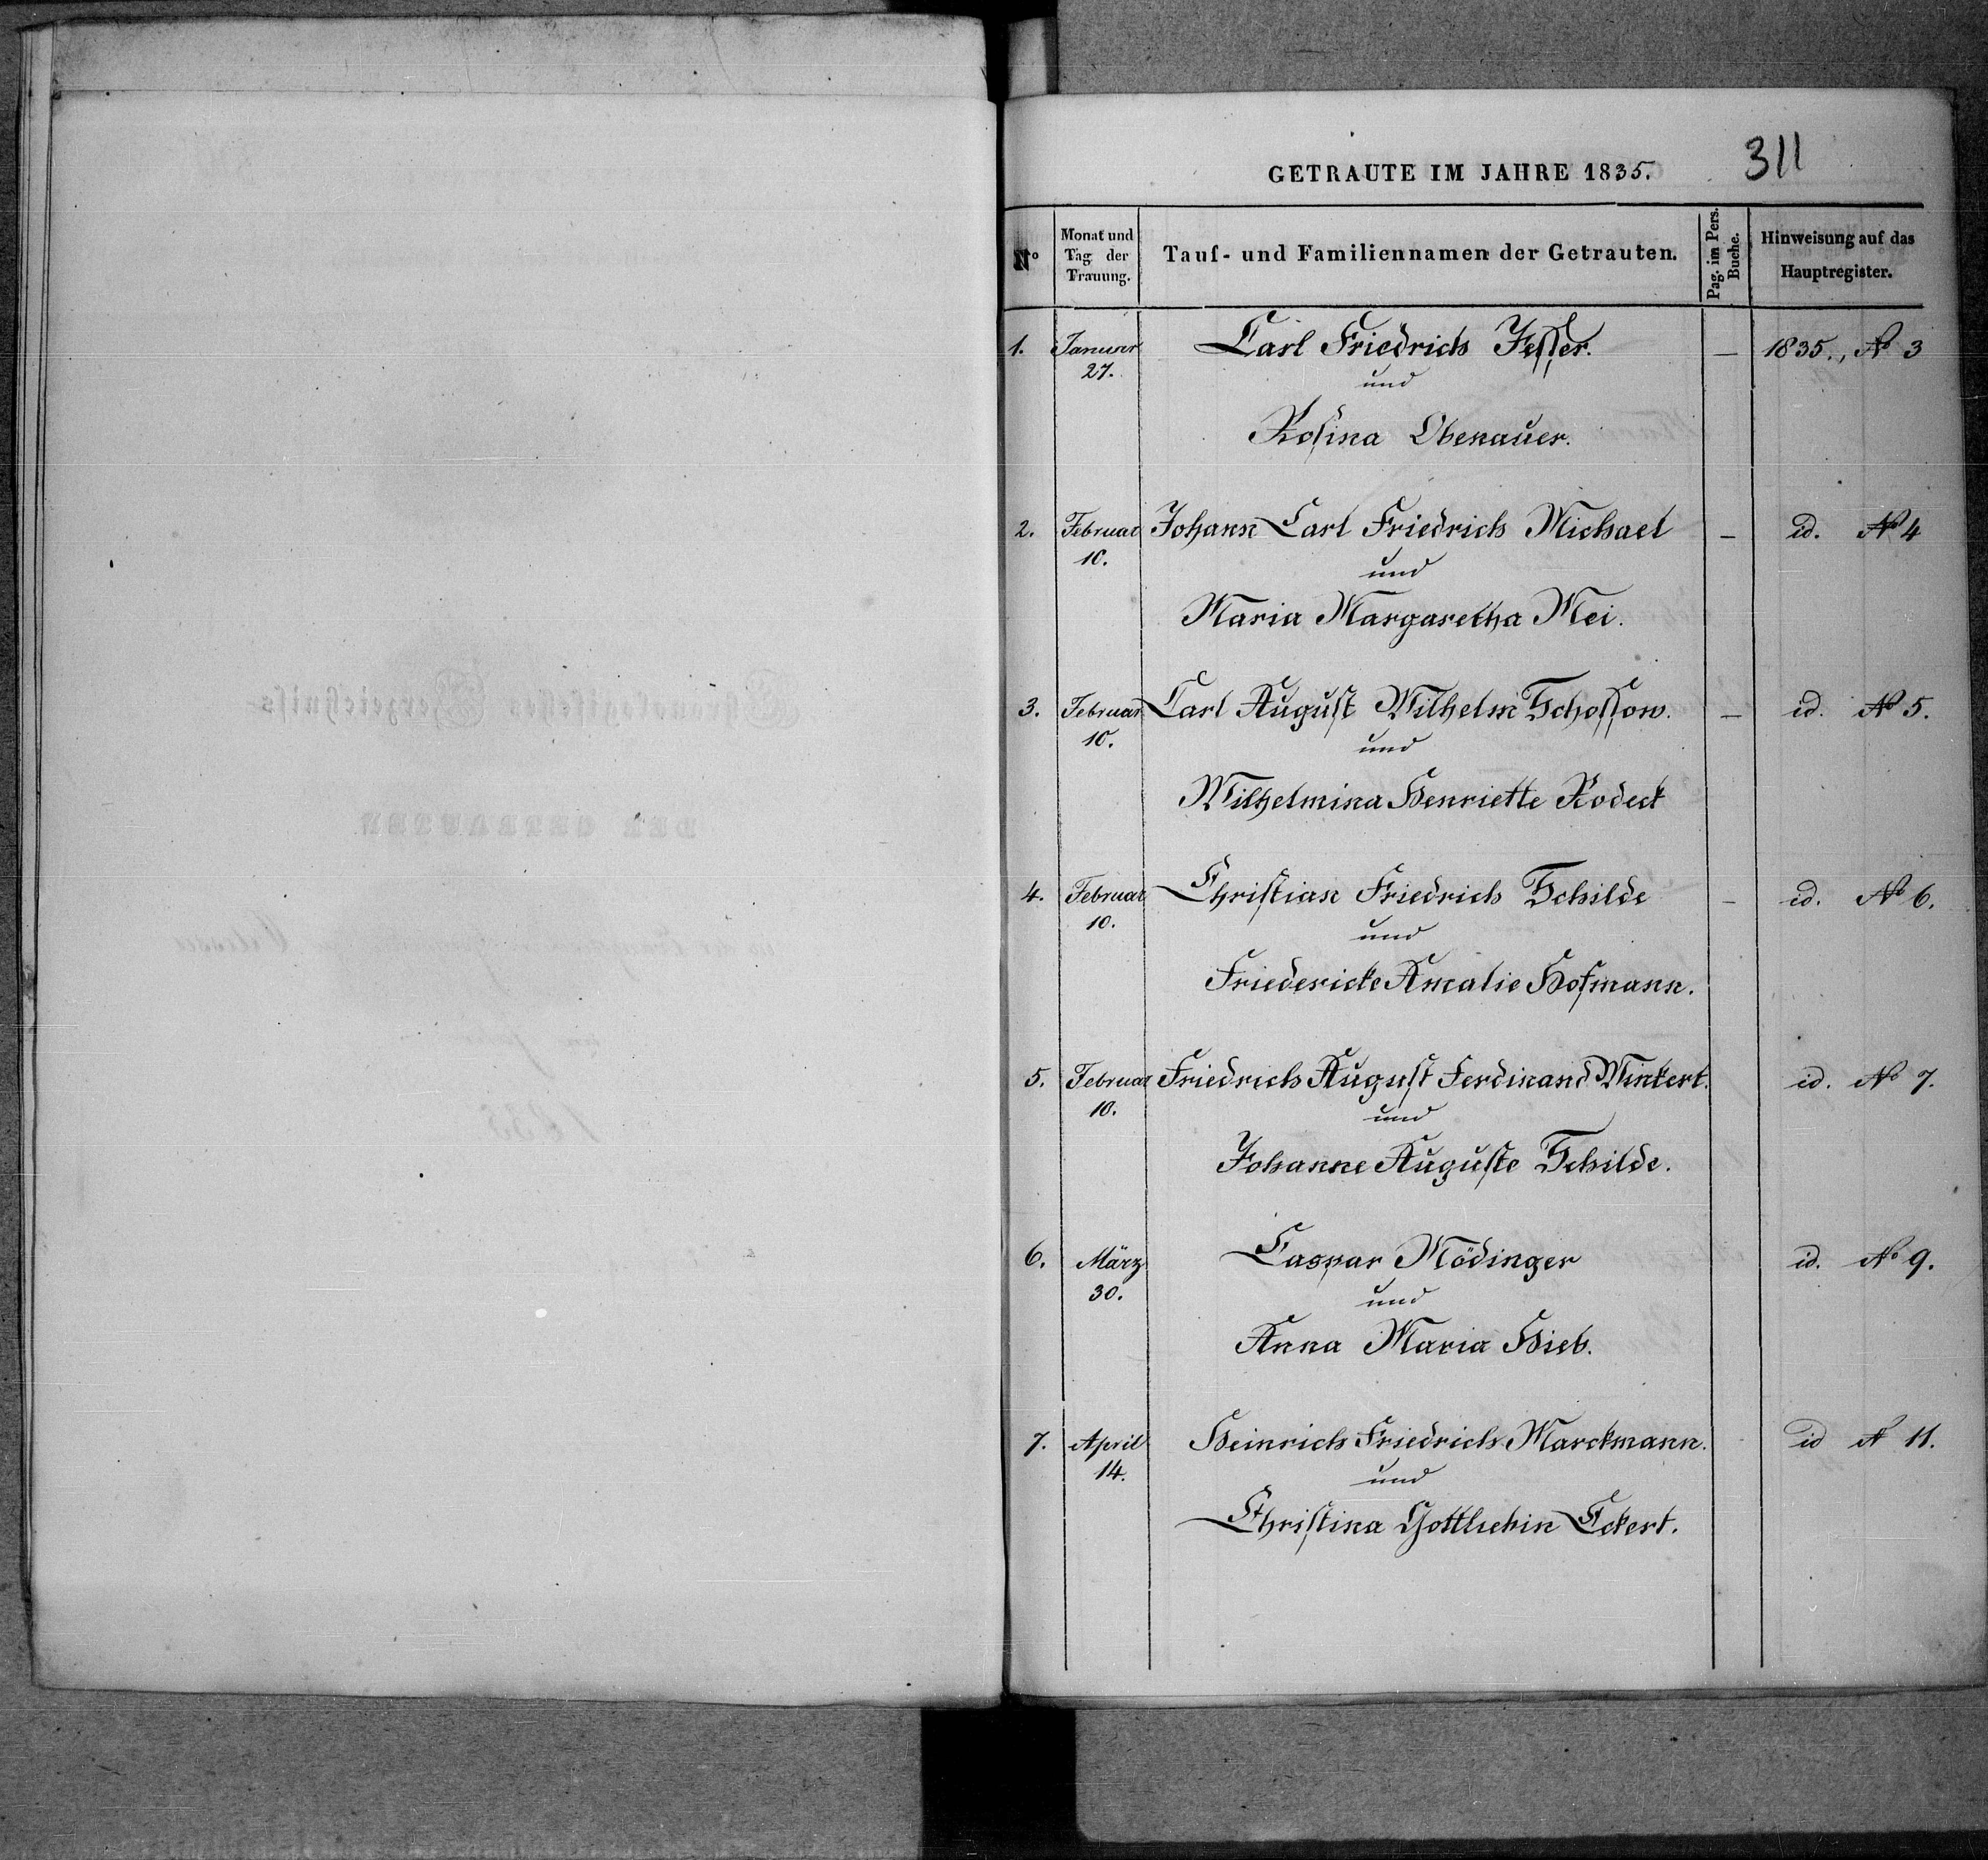 311
GETRAUTE IM JAHRE 1835.
No
Monat und Tag der Trauung.
Tauf- und Familiennamen der Getrauten.
Pag. im Pers. Buche.
Hinweisung auf das Hauptregister.
1. Januar Carl Friedrich Jesser. — 1835., No 3
27. und
Rosina Obenauer.
2. Februar Johann Carl Friedrich Michael — id. No 4
10. und
Maria Margaretha Mei.
3. Februar Carl August Wilhelm Schossow. — id. No 5.
10. und
Wilhelmina Henriette Rodeck
4. Februar Christian Friedrich Schilde — id. No 6.
10. und
Friedericke Amalie Hofmann.
5. Februar Friedrich August Ferdinand Winkert. id. No 7.
10. und
Johanne Auguste Schilde.
6. März Caspar Mödinger id. No 9.
30. und
Anna Maria Hieb.
7. April Heinrich Friedrich Marckmann. id No 11.
14. und
Christina Gottliebin Eckert.